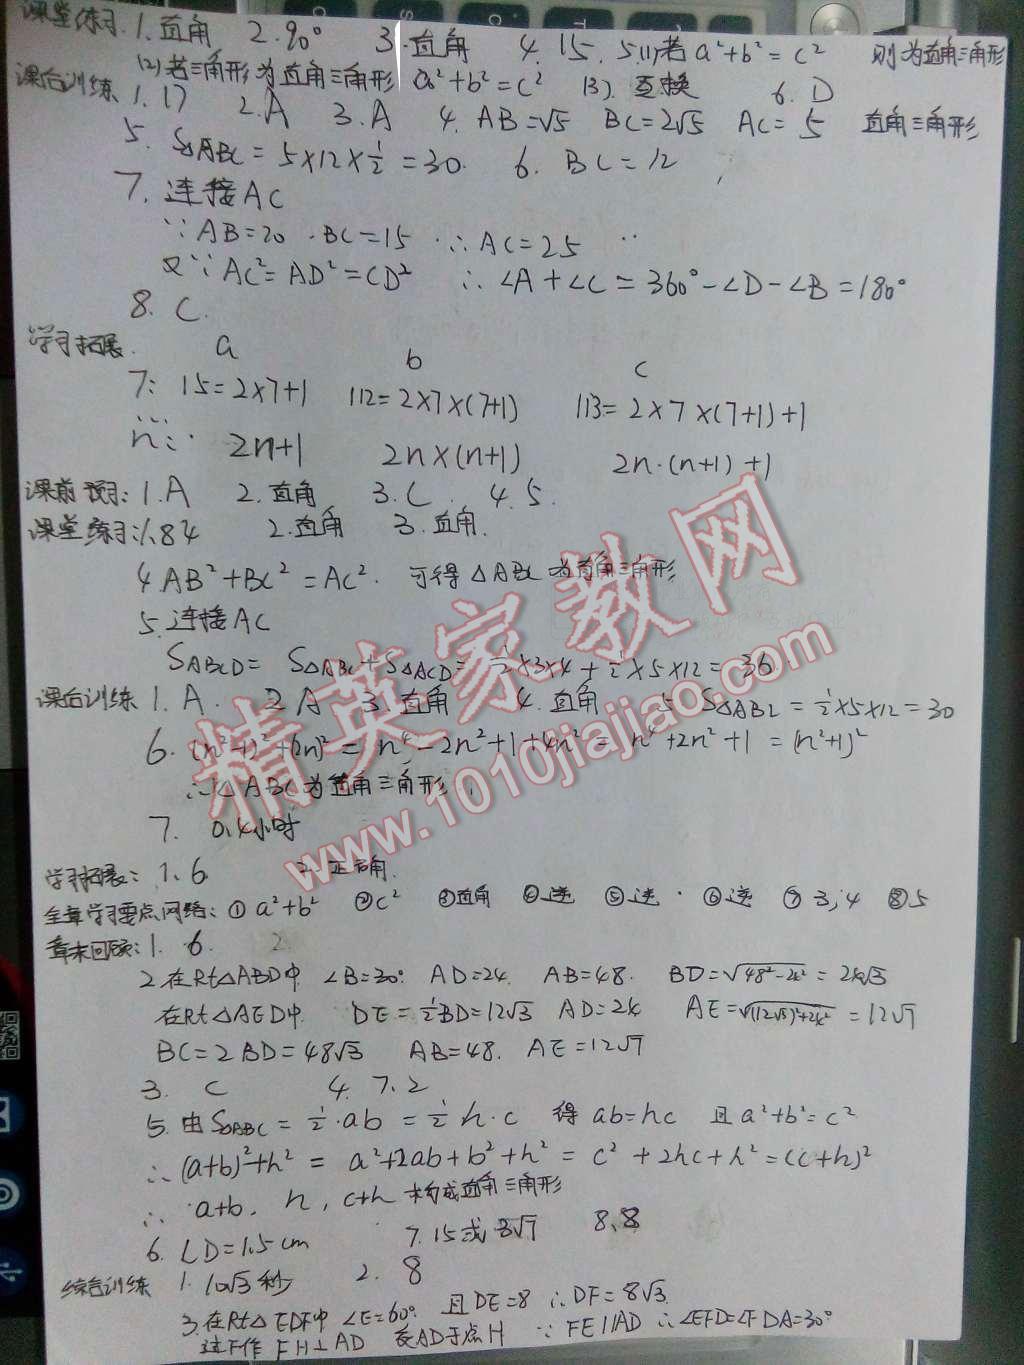 课堂练习. 1. 直角 2. 90° 3. 直角 4. 15. 5. (1) 若 a²+b²=c² 则为直角三角形
(2) 若三角形为直角三角形 a²+b²=c² (3). 互换 6. D
课后训练 1. 17 2. A 3. A 4. AB=√5 BC=2√5 AC=5 直角三角形
5. S△ABC=5×12×½=30. 6. BC=12
7. 连接AC
∵AB=20 ·BC=15 ∴AC=25
又∵AC²=AD²=CD² ∴∠A+∠C=360°-∠D-∠B=180°
8. C.
学习拓展. a b c
7: 15=2×7+1 112=2×7×(7+1) 113=2×7×(7+1)+1
n: 2n+1 2n×(n+1) 2n·(n+1)+1
课前预习: 1. A 2. 直角 3. C. 4. 5.
课堂练习: 1. 84 2. 直角 3. 直角.
4. AB²+BC²=AC². 可得△ABC为直角三角形
5. 连接AC
SABCD=S△ABC+S△ACD=½×3×4+½×5×12=36.
课后训练 1. A. 2. A 3. 直角 4. 直角 5. S△ABC=½×5×12=30
6. (n²-1)²+(2n)²=n⁴-2n²+1+4n²=n⁴+2n²+1=(n²+1)²
∴△ABC为直角三角形
7. 0.4小时
学习拓展: 1. 6 2. 正确.
全章学习要点网络: ①a²+b² ②c² ③直角 ④逆 ⑤逆 ⑥逆 ⑦3,4 ⑧5
章末回顾: 1. 6. 2
2. 在Rt△ABD中 ∠B=30° AD=24. AB=48. BD=√48²-24²=24√3
在Rt△AED中. DE=½BD=12√3 AD=24 AE=√(12√3)²+24²=12√7
BC=2BD=48√3 AB=48. AE=12√7
3. C 4. 7.2
5. 由S△ABC=½·ab=½h·c 得 ab=hc 且a²+b²=c²
∴(a+b)²+h²=a²+2ab+b²+h²=c²+2hc+h²=(c+h)²
∴a+b, h, c+h 构成直角三角形
6. CD=1.5cm 7. 15或3√7 8. 8
综合训练 1. 10√3秒 2. 8
3. 在Rt△EDF中 ∠E=60° 且DE=8 ∴DF=8√3.
过F作FH⊥AD 交AD于点H ∵FE∥AD ∴∠EFD=∠FDA=30°
精英家教网
www.1010jiajiao.com